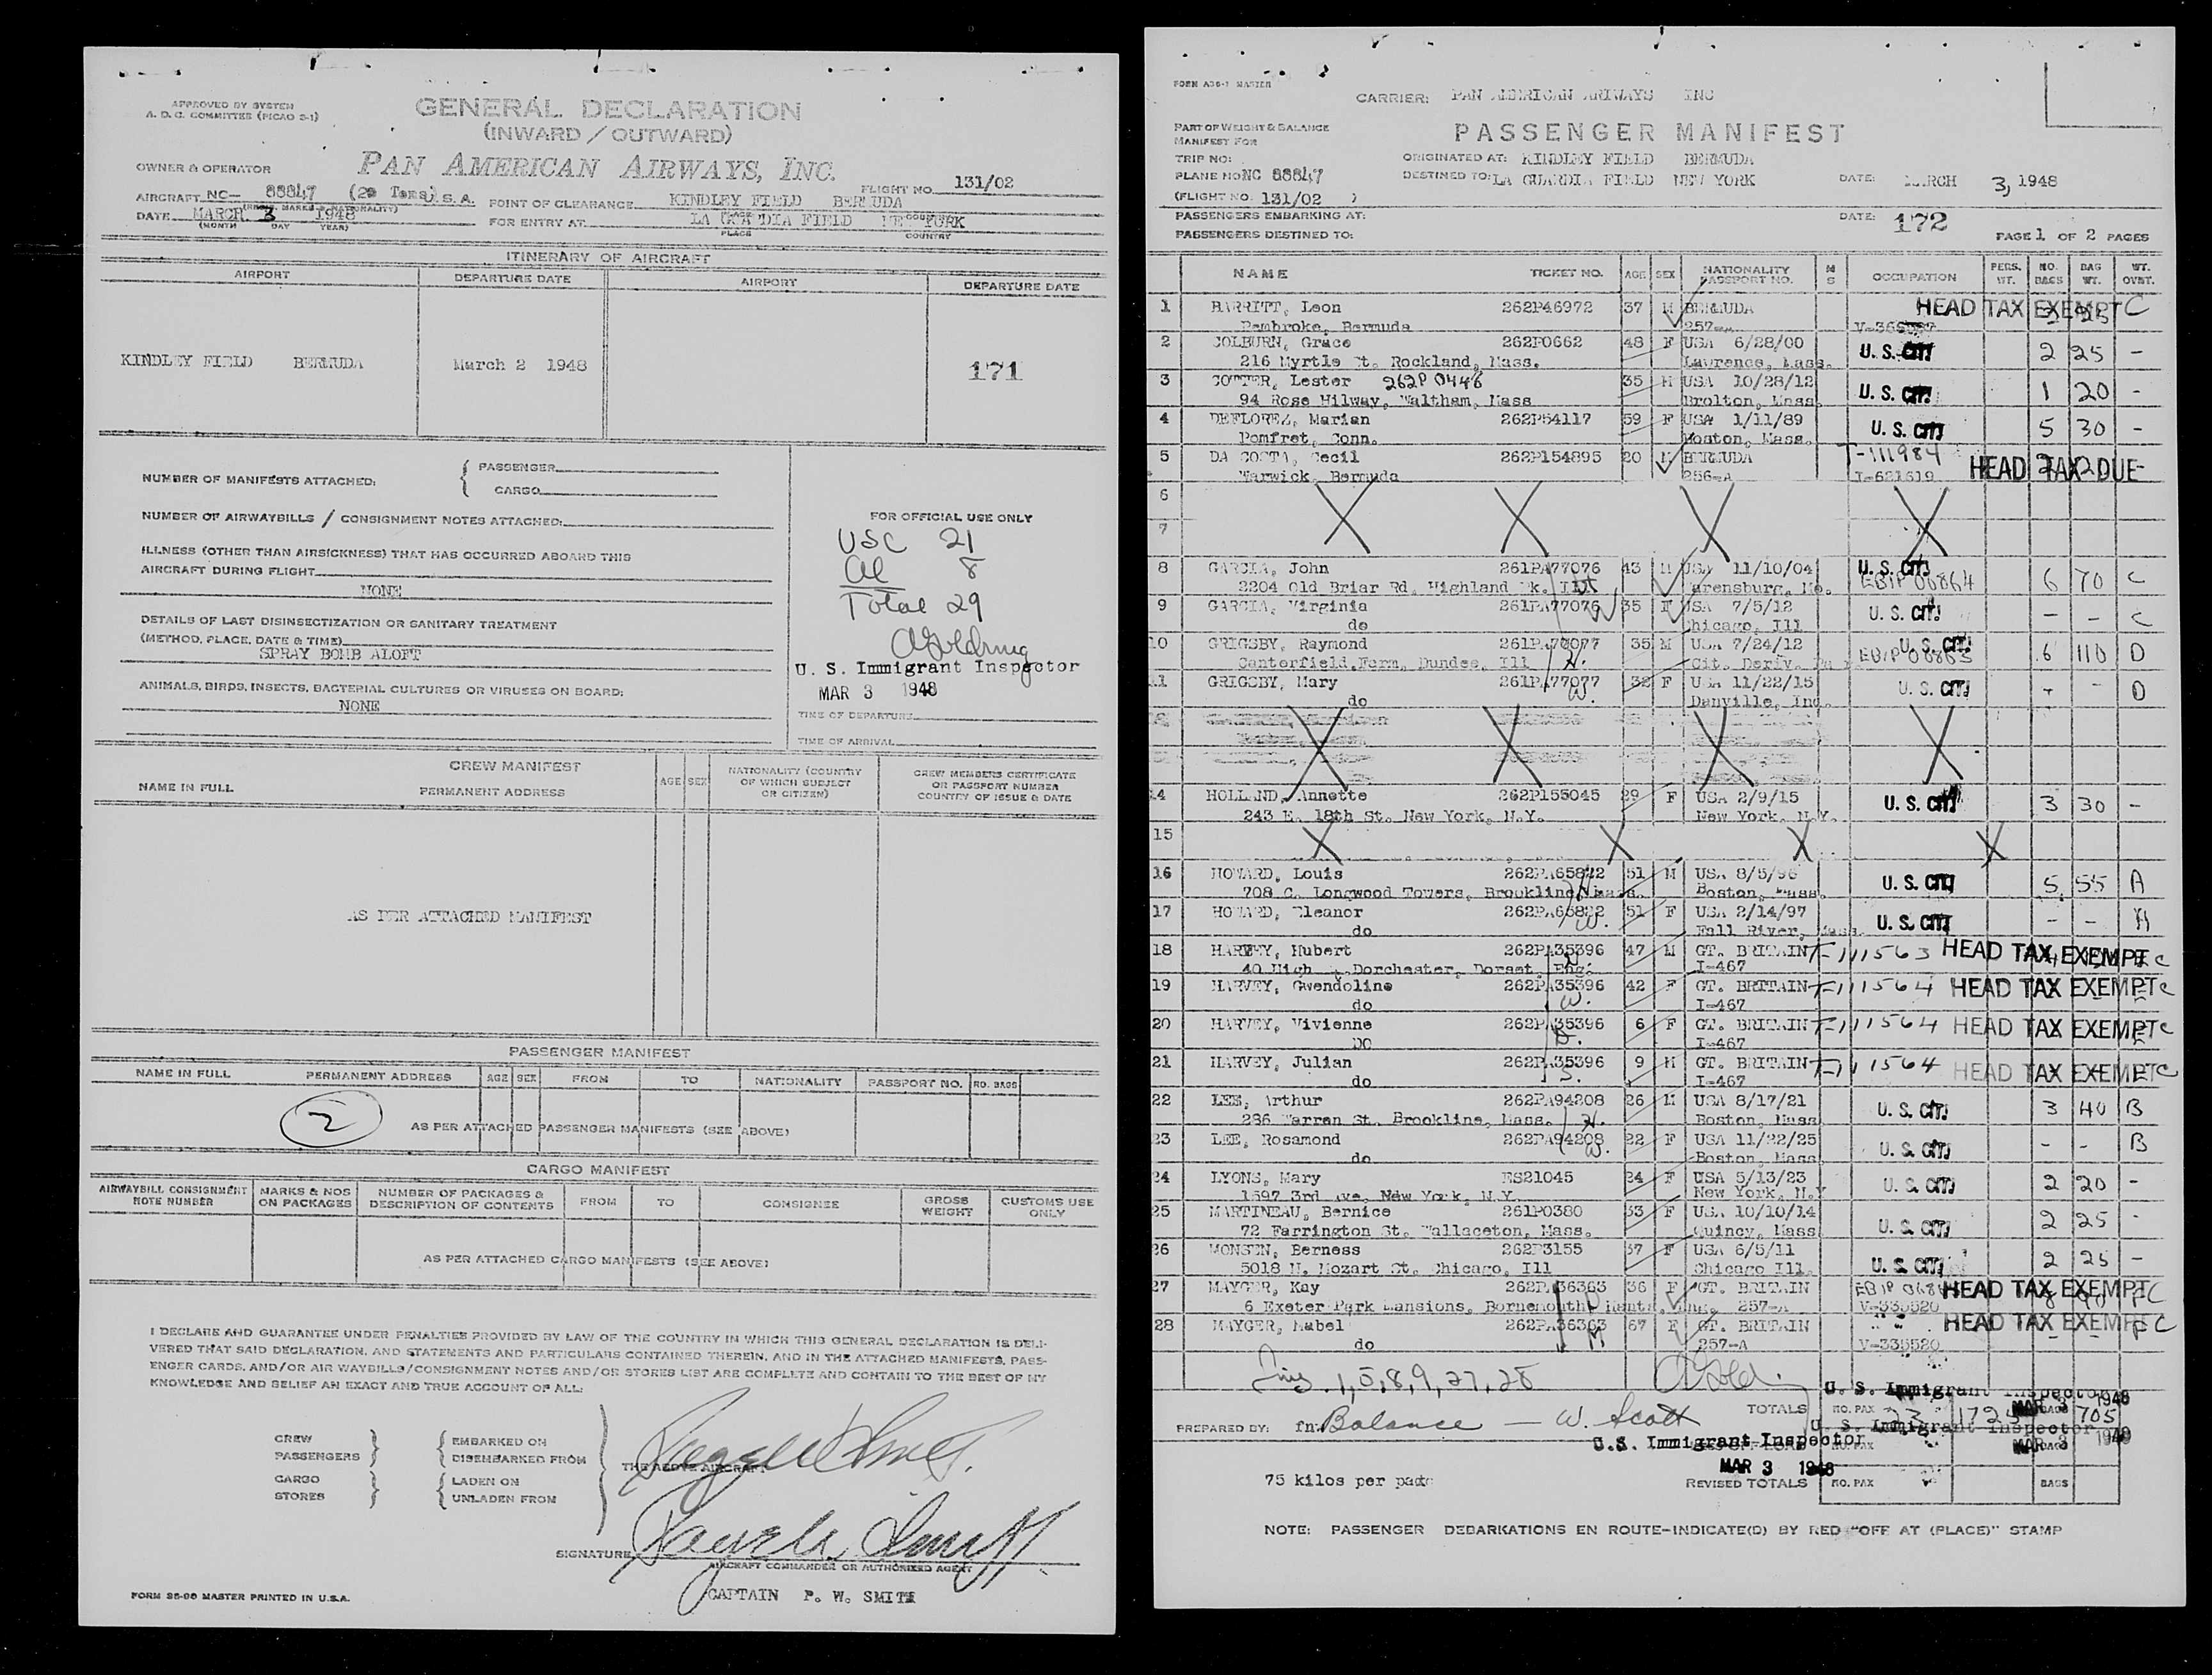 APPROVED BY SYSTEM
A. D. C. COMMITTEE (PICAO 2-1)
GENERAL DECLARATION
(INWARD / OUTWARD)
OWNER & OPERATOR PAN AMERICAN AIRWAYS, INC.
AIRCRAFT NC- 88847 U.S.A. FLIGHT NO. 131/02
(REGN. MARKS & NATIONALITY)
POINT OF CLEARANCE KINDLEY FIELD BERMUDA
PLACE COUNTRY
DATE MARCH 3 1948
(MONTH DAY YEAR)
FOR ENTRY AT LA GUARDIA FIELD NEW YORK
PLACE COUNTRY
ITINERARY OF AIRCRAFT
AIRPORT DEPARTURE DATE AIRPORT DEPARTURE DATE
KINDLEY FIELD BERMUDA March 2 1948 171
NUMBER OF MANIFESTS ATTACHED: { PASSENGER
CARGO
NUMBER OF AIRWAYBILLS / CONSIGNMENT NOTES ATTACHED:
ILLNESS (OTHER THAN AIRSICKNESS) THAT HAS OCCURRED ABOARD THIS
AIRCRAFT DURING FLIGHT
NONE
DETAILS OF LAST DISINSECTIZATION OR SANITARY TREATMENT
(METHOD, PLACE, DATE & TIME)
SPRAY BOMB ALOFT
ANIMALS, BIRDS, INSECTS, BACTERIAL CULTURES OR VIRUSES ON BOARD:
NONE
FOR OFFICIAL USE ONLY
USC 21
Al 8
Total 29
U. S. Immigrant Inspector
MAR 3 1948
TIME OF DEPARTURE
TIME OF ARRIVAL
CREW MANIFEST
NAME IN FULL PERMANENT ADDRESS AGE SEX NATIONALITY (COUNTRY OF WHICH SUBJECT OR CITIZEN) CREW MEMBERS CERTIFICATE OR PASSPORT NUMBER COUNTRY OF ISSUE & DATE
AS PER ATTACHED MANIFEST
PASSENGER MANIFEST
NAME IN FULL PERMANENT ADDRESS AGE SEX FROM TO NATIONALITY PASSPORT NO. NO. BAGS
2 AS PER ATTACHED PASSENGER MANIFESTS (SEE ABOVE)
CARGO MANIFEST
AIRWAYBILL CONSIGNMENT NOTE NUMBER MARKS & NOS ON PACKAGES NUMBER OF PACKAGES & DESCRIPTION OF CONTENTS FROM TO CONSIGNEE GROSS WEIGHT CUSTOMS USE ONLY
AS PER ATTACHED CARGO MANIFESTS (SEE ABOVE)
I DECLARE AND GUARANTEE UNDER PENALTIES PROVIDED BY LAW OF THE COUNTRY IN WHICH THIS GENERAL DECLARATION IS DELI-
VERED THAT SAID DECLARATION, AND STATEMENTS AND PARTICULARS CONTAINED THEREIN, AND IN THE ATTACHED MANIFESTS, PASS-
ENGER CARDS, AND/OR AIR WAYBILLS/CONSIGNMENT NOTES AND/OR STORES LIST ARE COMPLETE AND CONTAIN TO THE BEST OF MY
KNOWLEDGE AND BELIEF AN EXACT AND TRUE ACCOUNT OF ALL:
CREW
PASSENGERS } { EMBARKED ON
DISEMBARKED FROM
CARGO
STORES } { LADEN ON
UNLADEN FROM
THE ABOVE AIRCRAFT
SIGNATURE
AIRCRAFT COMMANDER OR AUTHORIZED AGENT
CAPTAIN P. W. SMITH
FORM 35-90 MASTER PRINTED IN U.S.A.
FORM A36-1 MASTER
CARRIER: PAN AMERICAN ARIWAYS INC
PART OF WEIGHT & BALANCE
MANIFEST FOR
PASSENGER MANIFEST
TRIP NO: ORIGINATED AT: KINDLEY FIELD BERMUDA
PLANE NO: NC 88847 DESTINED TO: LA GUARDIA FIELD NEW YORK DATE: MARCH 3, 1948
(FLIGHT NO: 131/02 )
PASSENGERS EMBARKING AT: DATE: 172
PASSENGERS DESTINED TO: PAGE 1 OF 2 PAGES
NAME TICKET NO. AGE SEX NATIONALITY PASSPORT NO. M S OCCUPATION PERS. WT. NO. BAGS BAG WT. WT. OVST.
1 BARRITT, Leon 262P46972 37 M BERMUDA HEAD TAX EXEMPT C
Pembroke, Bermuda
2 COLBURN, Grace 262P0662 48 F USA 6/28/00 U. S. CIT. 2 25 -
216 Myrtle St. Rockland, Mass. Lawrence, Mass.
3 COTTER, Lester 262P 0446 35 M USA 10/28/12 U. S. CIT. 1 20 -
94 Rose Hilway, Waltham, Mass Brolton, Mass.
4 DEFLOREZ, Marian 262P54117 59 F USA 1/11/89 U. S. CIT. 5 30 -
Pomfret, Conn. Boston, Mass.
5 DA COSTA, Cecil 262P154895 20 M BERMUDA T-111984 HEAD TAX DUE
Warwick, Bermuda 256-A I-621619
6
7
8 GARCIA, John 261PA77076 43 M USA 11/10/04 U. S. CIT. 6 70 C
2204 Old Briar Rd, Highland Pk. Ill arensburg, Mo. EBIP 06864
9 GARCIA, Virginia 261PA77076 35 F USA 7/5/12 U. S. CIT. - - C
do Chicago, Ill
10 GRIGSBY, Raymond 261PA77077 35 M USA 7/24/12 U. S. CIT. 6 110 D
Canterfield Farm, Dundee, Ill H. Cit. Deriv.
11 GRIGSBY, Mary 261PA77077 32 F USA 11/22/15 U. S. CIT. - - D
do W. Danville, Ind.
14 HOLLAND, Annette 262P155045 29 F USA 2/9/15 U. S. CIT. 3 30 -
243 E. 18th St. New York, N.Y. New York, N.Y.
15
16 HOWARD, Louis 262PA65822 51 M USA 8/5/96 U. S. CIT. 5 55 A
708 C. Longwood Towers, Brookline, Mass. Boston, Mass.
17 HOWARD, Eleanor 262PA65822 51 F USA 2/14/97 U. S. CIT. - - A
do W. Fall River, Mass.
18 HARVEY, Hubert 262PA35396 47 M GT. BRITAIN T-111563 HEAD TAX EXEMPT
40 High Dorchester, Dorset, Eng. I-467
19 HARVEY, Gwendoline 262PA35396 42 F GT. BRITAIN T-111564 HEAD TAX EXEMPT
do W. I-467
20 HARVEY, Vivienne 262PA35396 6 F GT. BRITAIN T-111564 HEAD TAX EXEMPT
DO D. I-467
21 HARVEY, Julian 262PA35396 9 M GT. BRITAIN T-111564 HEAD TAX EXEMPT
do S. I-467
22 LEE, Arthur 262PA94208 26 M USA 8/17/21 U. S. CIT. 3 40 B
286 Warren St. Brookline, Mass. H. Boston, Mass
23 LEE, Rosamond 262PA94208 22 F USA 11/22/25 U. S. CIT. - - B
do W. Boston, Mass
24 LYONS, Mary ES21045 24 F USA 5/13/23 U. S. CIT. 2 20 -
1597 3rd Ave. New York, N.Y. New York, N.Y
25 MARTINEAU, Bernice 261P0380 33 F USA 10/10/14 U. S. CIT. 2 25 -
72 Farrington St. Wallaceton, Mass. Quincy, Mass
26 MONSEN, Berness 262P3155 37 F USA 6/5/11 U. S. CIT. 2 25 -
5018 N. Mozart St. Chicago, Ill Chicago Ill.
27 MAYGER, Kay 262PA36363 36 F GT. BRITAIN HEAD TAX EXEMPT C
6 Exeter Park Mansions, Bornemouth, Hants, Eng. 257-A V-335520
28 MAYGER, Mabel 262PA36363 67 F GT. BRITAIN HEAD TAX EXEMPT C
do M 257-A V-335520
1, 5, 8, 9, 27, 28
U. S. Immigrant Inspector
MAR 3 1948
TOTALS NO. PAX 23 1725 BAGS 705
PREPARED BY: fn. Balance - W. Scott
U. S. Immigrant Inspector
MAR 3 1948
U.S. Immigrant Inspector
MAR 3 1948
75 kilos per pax
REVISED TOTALS NO. PAX BAGS
NOTE: PASSENGER DEBARKATIONS EN ROUTE-INDICATE(D) BY RED "OFF AT (PLACE)" STAMP